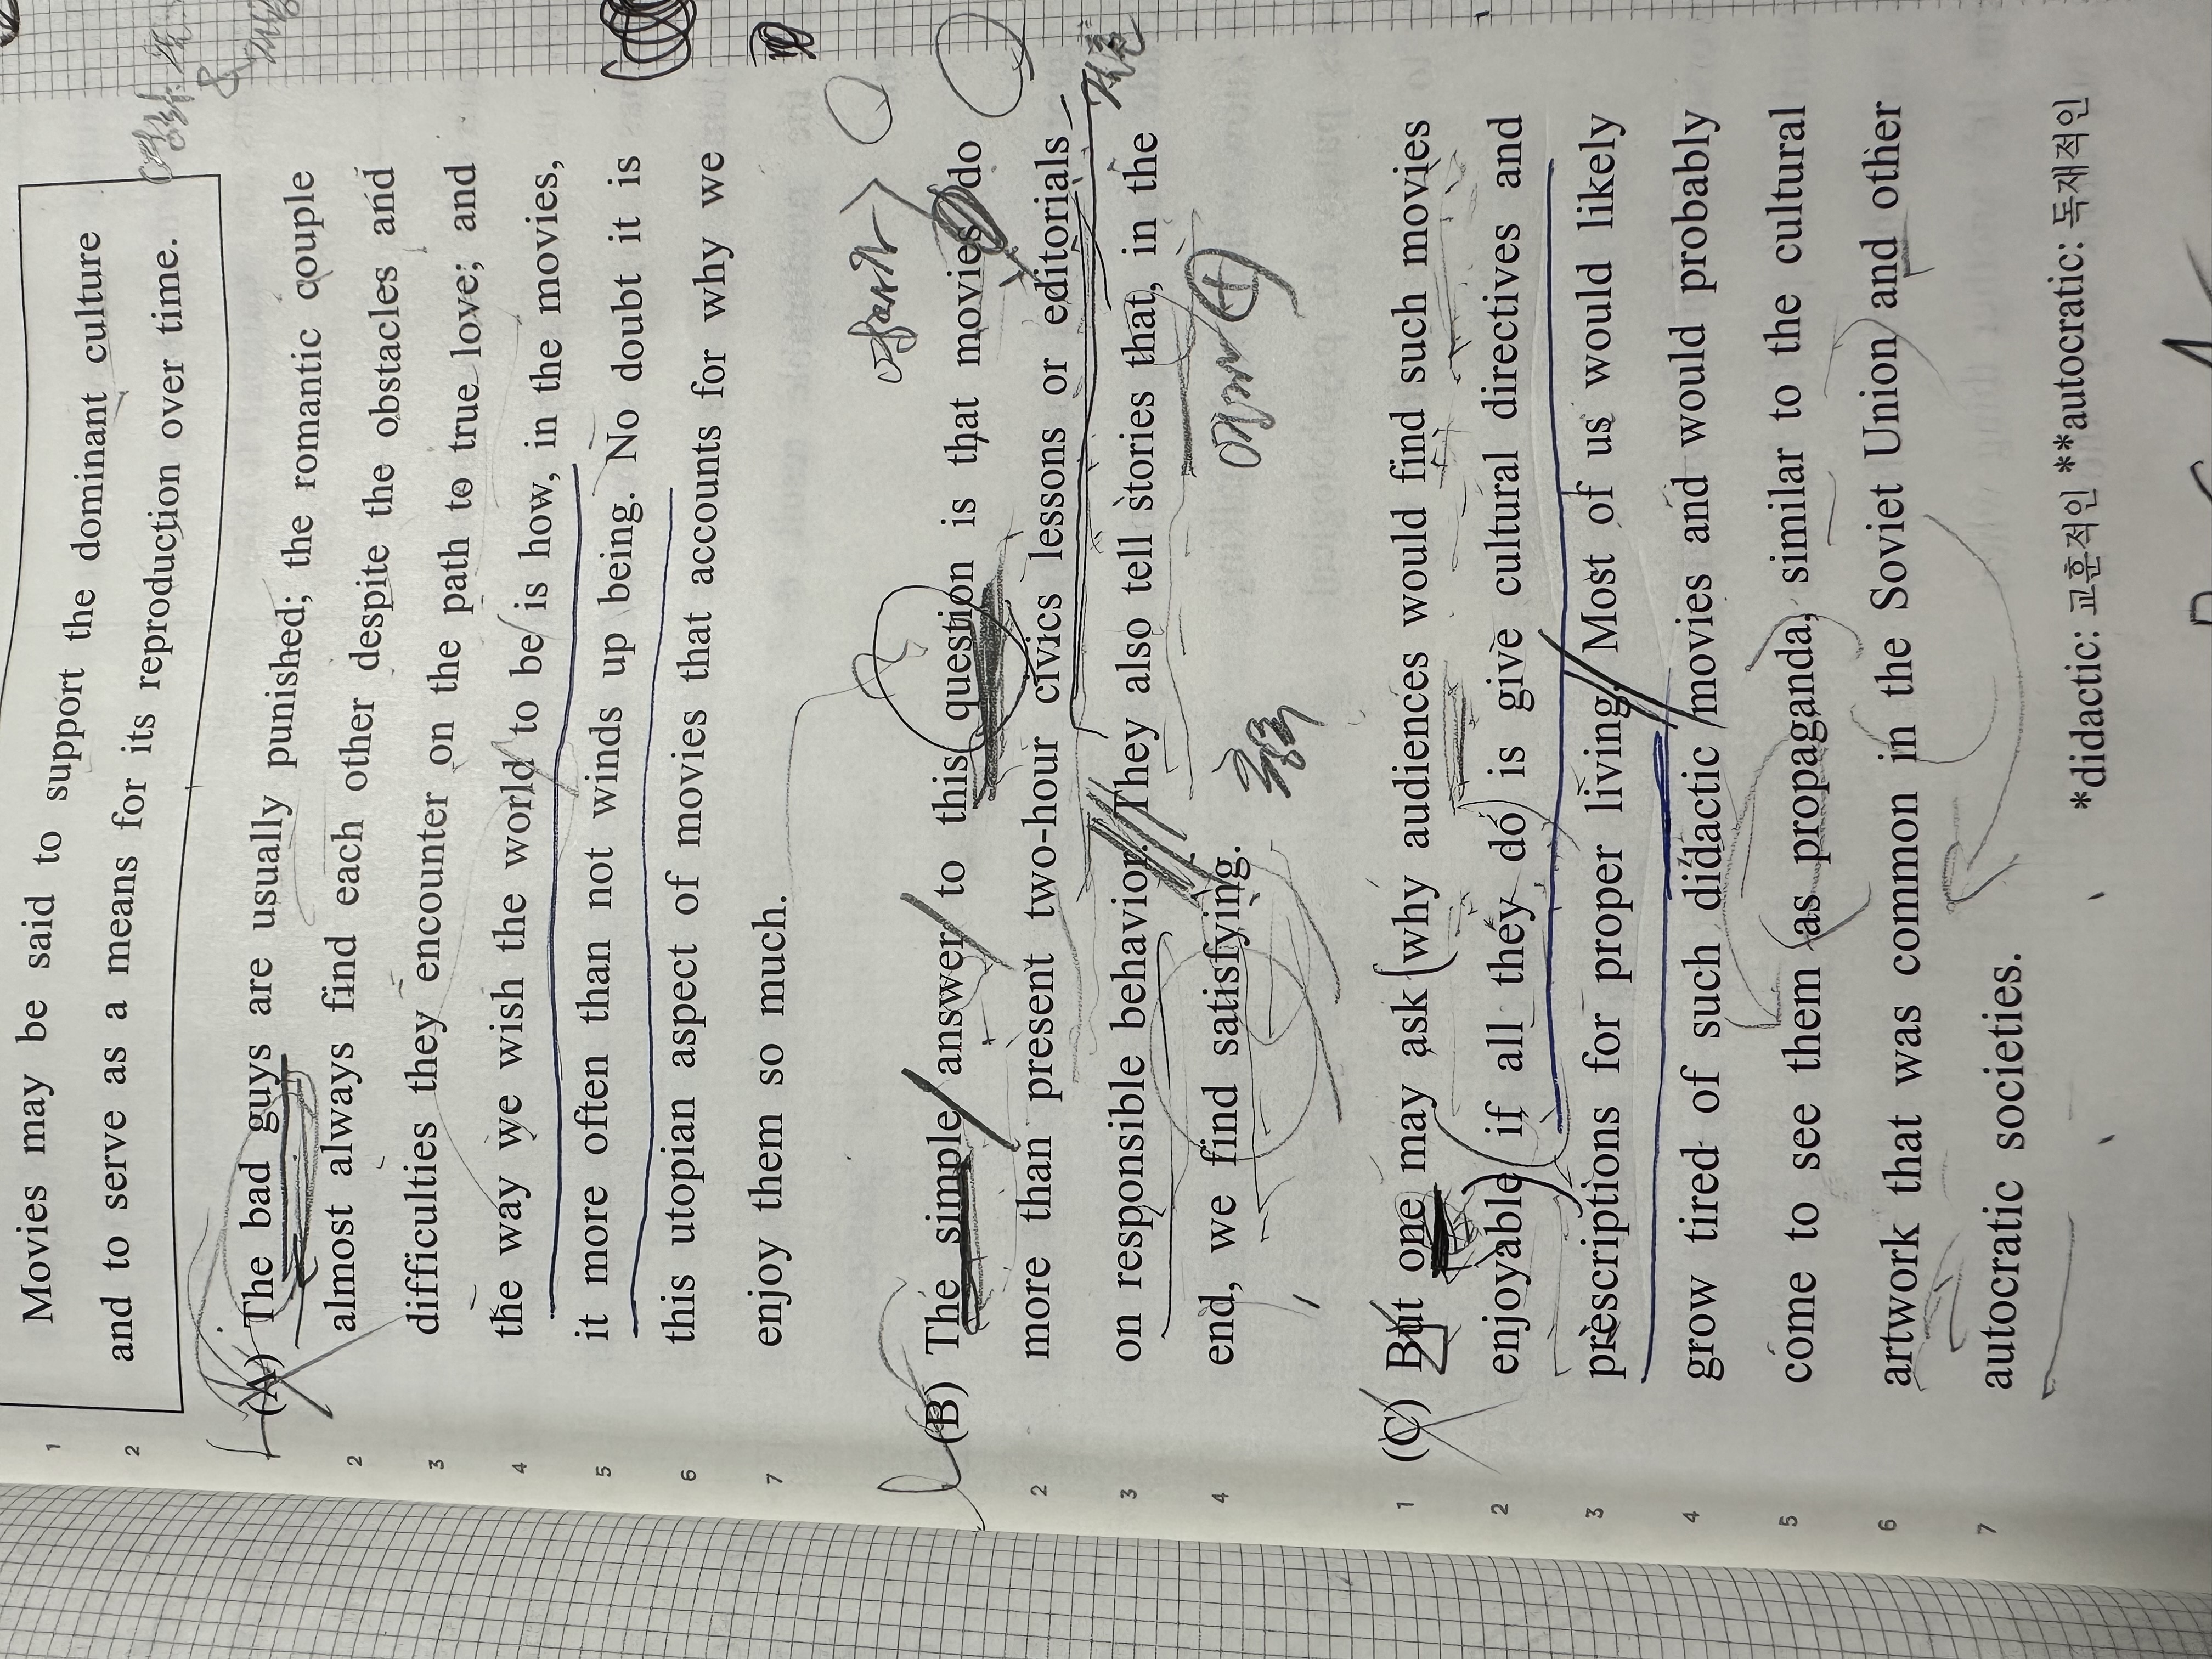 1 Movies may be said to support the dominant culture
2 and to serve as a means for its reproduction over time.
(A) The bad guys are usually punished; the romantic couple
2 almost always find each other despite the obstacles and
3 difficulties they encounter on the path to true love; and
4 the way we wish the world to be is how, in the movies,
5 it more often than not winds up being. No doubt it is
6 this utopian aspect of movies that accounts for why we
7 enjoy them so much.
(B) The simple answer to this question is that movies do
2 more than present two-hour civics lessons or editorials
3 on responsible behavior. They also tell stories that, in the
4 end, we find satisfying.
1 (C) But one may ask why audiences would find such movies
2 enjoyable if all they do is give cultural directives and
3 prescriptions for proper living. Most of us would likely
4 grow tired of such didactic movies and would probably
5 come to see them as propaganda, similar to the cultural
6 artwork that was common in the Soviet Union and other
7 autocratic societies.
*didactic: 교훈적인 **autocratic: 독재적인